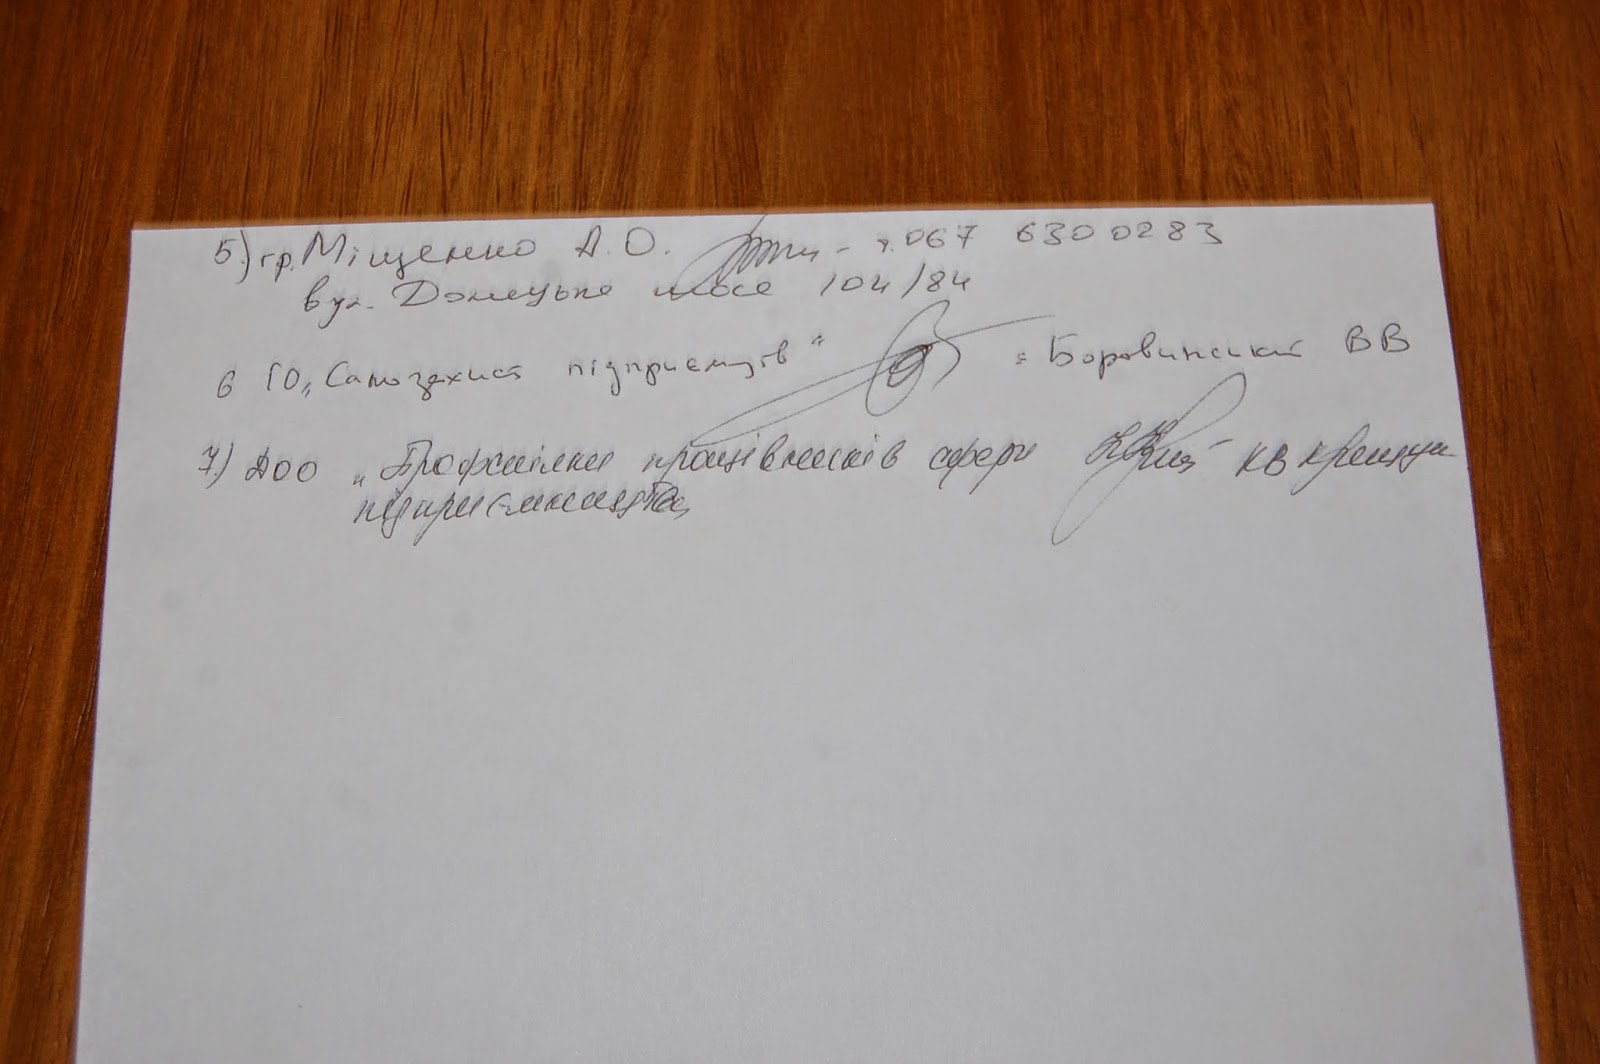 5) гр. Міщенко А.О. - т. 067 6300283
вул. Донецьке шосе 104/84
6 ГО „Самозахист підприємців“ Боровинський В В
7.) ДОО „Профспілки працівників сфери КВ
підприємництва